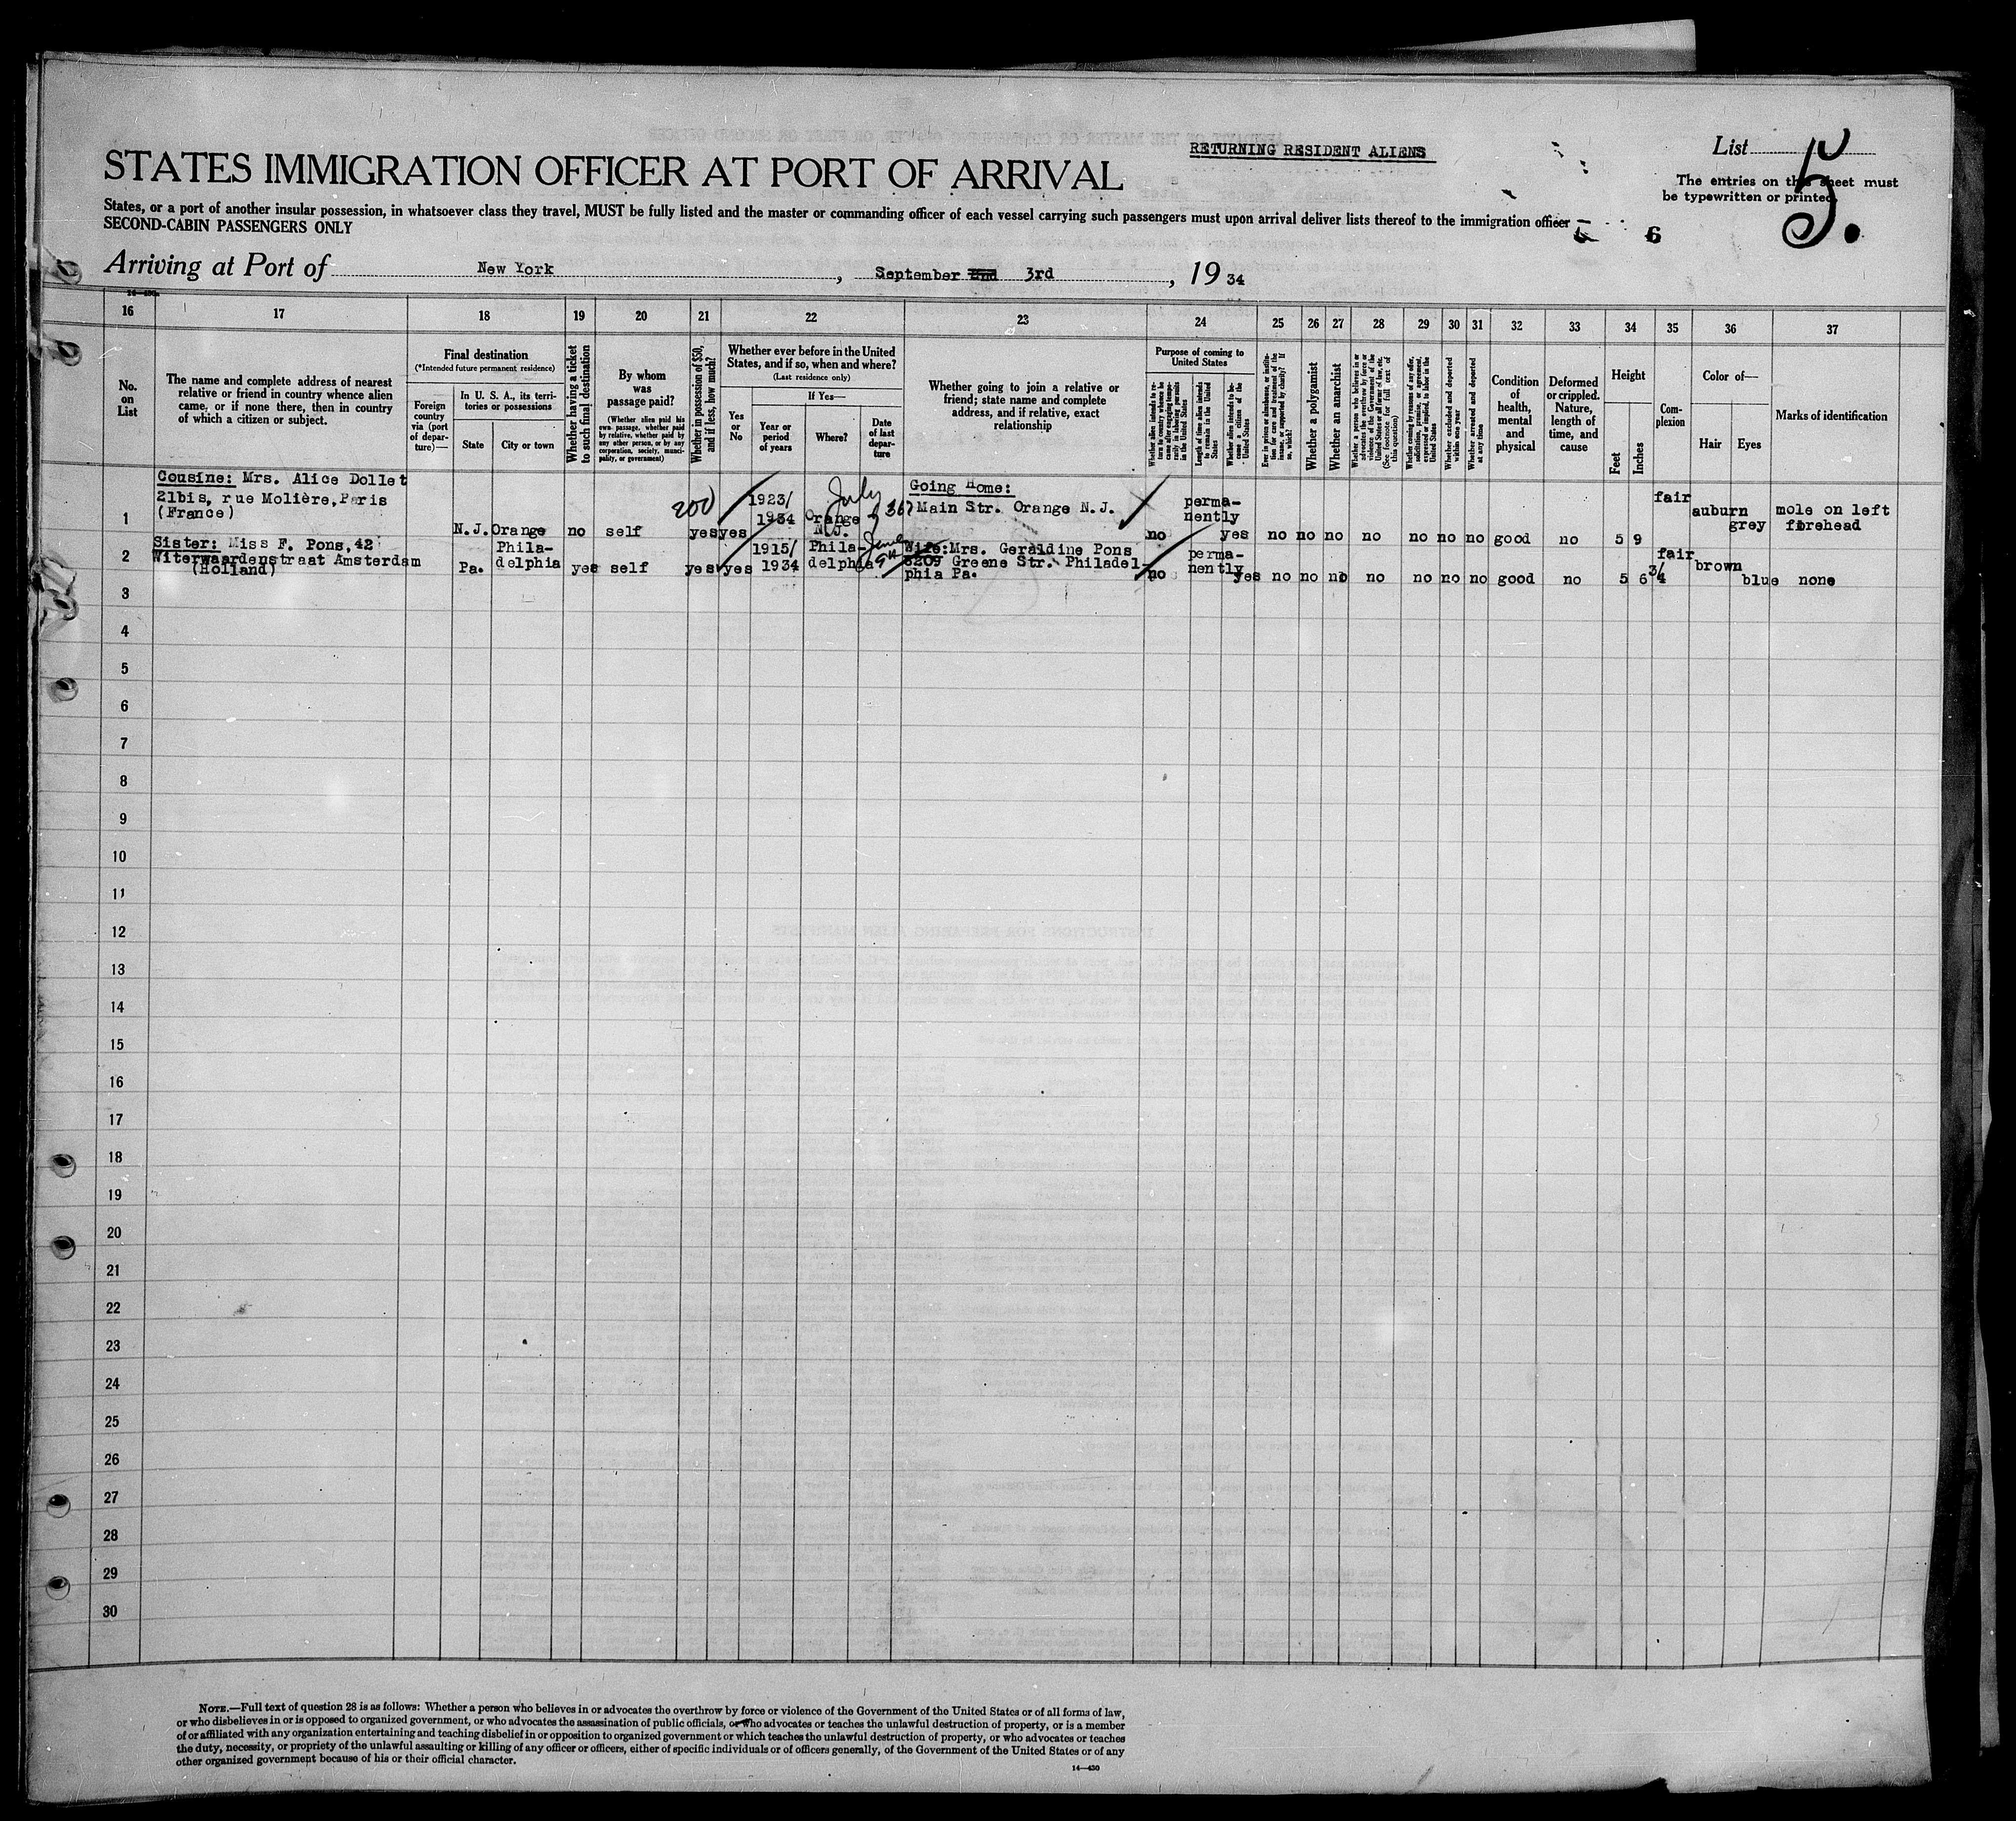 RETURNING RESIDENT ALIENS
List 5.
STATES IMMIGRATION OFFICER AT PORT OF ARRIVAL
The entries on this sheet must
be typewritten or printed
States, or a port of another insular possession, in whatsoever class they travel, MUST be fully listed and the master or commanding officer of each vessel carrying such passengers must upon arrival deliver lists thereof to the immigration officer
SECOND-CABIN PASSENGERS ONLY
6
Arriving at Port of New York, September 2nd 3rd, 1934
16 17 18 19 20 21 22 23 24 25 26 27 28 29 30 31 32 33 34 35 36 37
No. on List
The name and complete address of nearest
relative or friend in country whence alien
came, or if none there, then in country
of which a citizen or subject.
Final destination
(*Intended future permanent residence)
Foreign country via (port of departure)—
In U. S. A., its territories or possessions
State
City or town
Whether having a ticket to such final destination
By whom was passage paid?
(Whether alien paid his own passage, whether paid by relative, whether paid by any other person, or by any corporation, society, municipality, or government)
Whether in possession of $50, and if less, how much?
Whether ever before in the United
States, and if so, when and where?
(Last residence only)
Yes or No
If Yes—
Year or period of years
Where?
Date of last departure
Whether going to join a relative or
friend; state name and complete
address, and if relative, exact
relationship
Purpose of coming to United States
Whether alien intends to return to country whence he came after engaging temporarily in laboring pursuits in the United States
Length of time alien intends to remain in the United States
Whether alien intends to become a citizen of the United States
Ever in prison or almshouse, or institution for care and treatment of the insane, or supported by charity? If so, which?
Whether a polygamist
Whether an anarchist
Whether a person who believes in or advocates the overthrow by force or violence of the Government of the United States or all forms of law, etc. (See footnote for full text of this question)
Whether coming by reasons of any offer, solicitation, promise, or agreement, expressed or implied, to labor in the United States
Whether excluded and deported within one year
Whether arrested and deported at any time
Condition of health, mental and physical
Deformed or crippled. Nature, length of time, and cause
Height
Feet
Inches
Complexion
Color of—
Hair
Eyes
Marks of identification
1
Cousine: Mrs. Alice Dollet
21bis, rue Molière, Paris
(France)
N.J. Orange no self 200 yes yes 1923/
1934 Orange
N.J. July
Going Home:
367 Main Str. Orange N.J.
no perma-
nently yes no no no no no no no good no 5 9 fair auburn grey mole on left
forehead
2
Sister: Miss F. Pons, 42
Witerwaardenstraat Amsterdam
(Holland)
Pa. Phila-
delphia yes self yes yes 1915/
1934 Phila-
delphia June
Wife: Mrs. Geraldine Pons
5209 Greene Str. Philadel-
phia Pa.
no perma-
nently yes no no no no no no no good no 5 6 3/4 fair brown blue none
3
4
5
6
7
8
9
10
11
12
13
14
15
16
17
18
19
20
21
22
23
24
25
26
27
28
29
30
NOTE.—Full text of question 28 is as follows: Whether a person who believes in or advocates the overthrow by force or violence of the Government of the United States or of all forms of law,
or who disbelieves in or is opposed to organized government, or who advocates the assassination of public officials, or who advocates or teaches the unlawful destruction of property, or is a member
of or affiliated with any organization entertaining and teaching disbelief in or opposition to organized government or which teaches the unlawful destruction of property, or who advocates or teaches
the duty, necessity, or propriety of the unlawful assaulting or killing of any officer or officers, either of specific individuals or of officers generally, of the Government of the United States or of any
other organized government because of his or their official character.
14—430